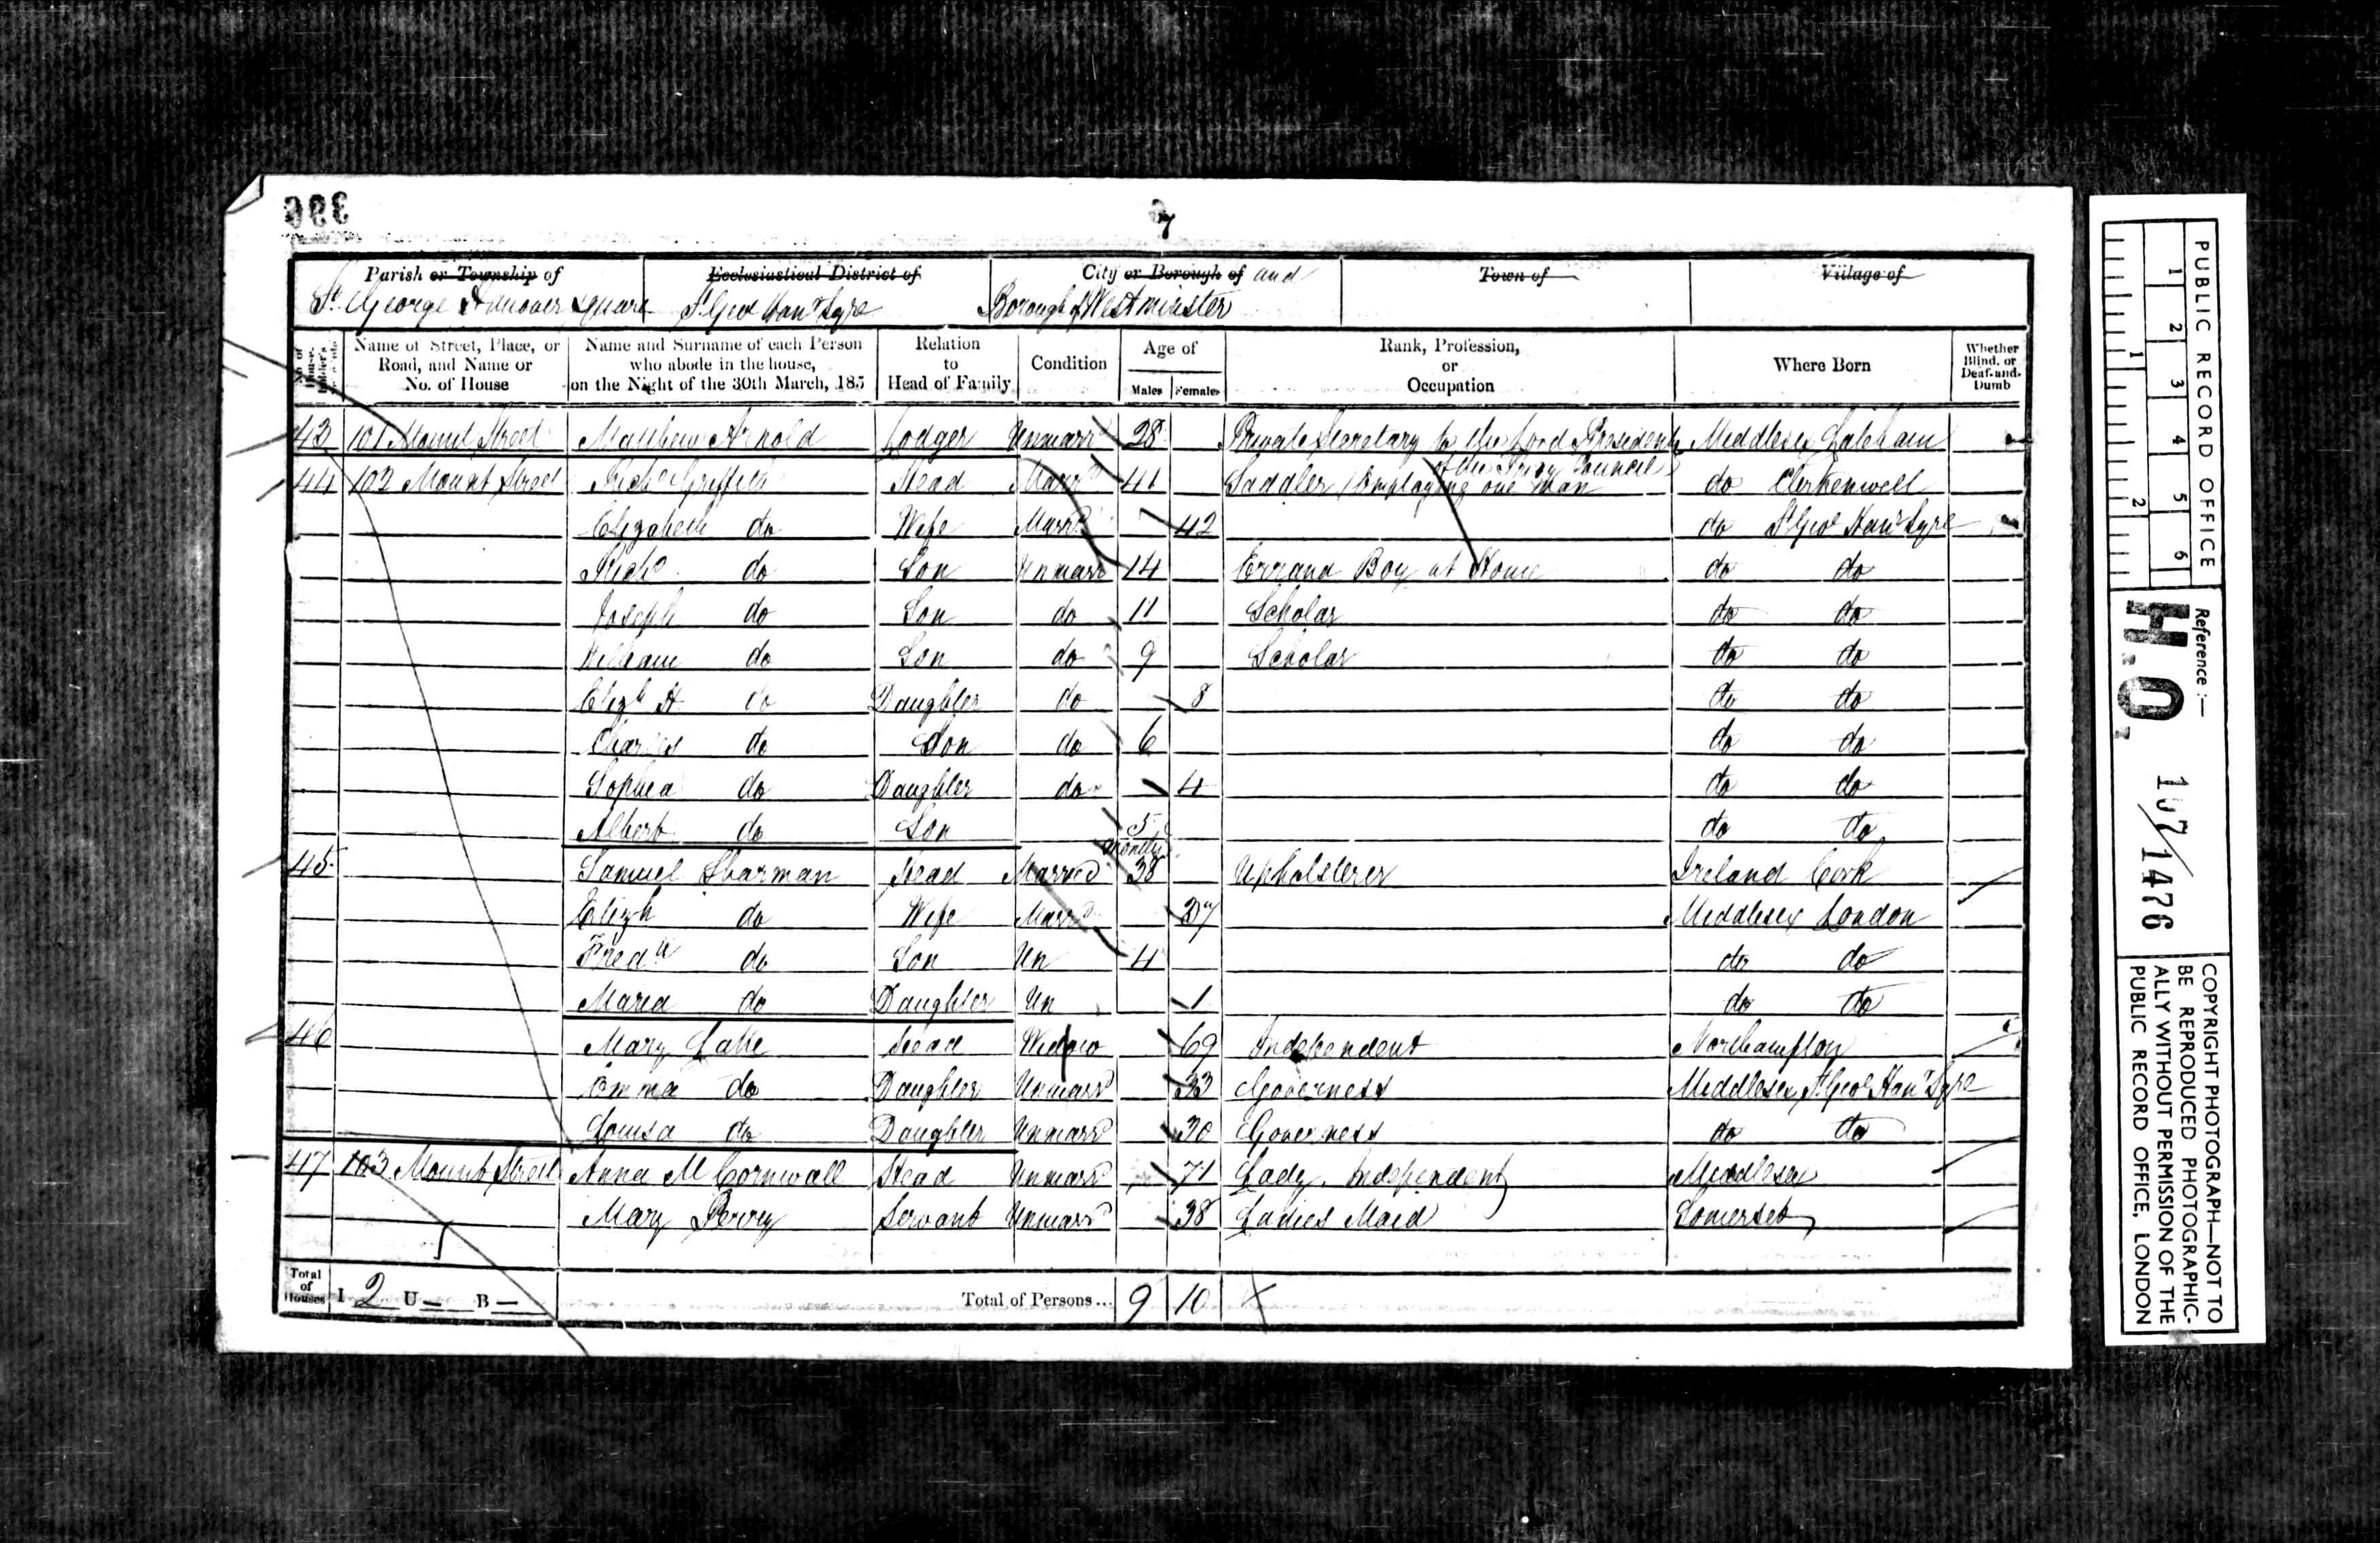 396
7
Parish or Township of
St. George Hanover Square
Ecclesiastical District of
St Geo Hanr Sqre
City or Borough of and
Borough of Westminster
Town of
Village of
Name of Street, Place, or Road, and Name or No. of House
Name and Surname of each Person who abode in the house, on the Night of the 30th March, 185
Relation to Head of Family
Condition
Age of
Males Females
Rank, Profession, or Occupation
Where Born
Whether Blind, or Deaf-and-Dumb
43 101 Mount Street Matthew Arnold Lodger Unmarrd 28 Private Secretary to the Lord President Middlesex Laleham
of the Privy Council
44 102 Mount Street Richd Griffith Head Marrd 41 Saddler Employing one man do Clerkenwell
Elizabeth do Wife Marrd 42 do St Geo Hanr Sqre
Richd do Son Unmarr 14 Errand Boy at Home do do
Joseph do Son do 11 Scholar do do
William do Son do 9 Scholar do do
Elizh H do Daughter do 8 do do
Charles do Son do 6 do do
Sophia do Daughter do 4 do do
Albert do Son 5 Months do do
45 Samuel Sharman Head Married 38 Upholsterer Ireland Cork
Elizh do Wife Marrd 27 Middlesex London
Fredk do Son Un 4 do do
Maria do Daughter Un 1 do do
46 Mary Lake Head Widow 69 Independent Northampton
Emma do Daughter Unmarrd 33 Governess Middlesex St Geo Hanr Sqre
Louisa do Daughter Unmarrd 30 Governess do do
47 103 Mount Street Anna M Cornwall Head Unmarrd 71 Lady Independent Middlesex
Mary Perry Servant Unmarrd 38 Ladies Maid Somerset
Total of Houses I 2 U — B — Total of Persons... 9 10
PUBLIC RECORD OFFICE
1 2 3 4 5 6
1 2
Reference :—
H.O. 107/1476
COPYRIGHT PHOTOGRAPH—NOT TO
BE REPRODUCED PHOTOGRAPHIC-
ALLY WITHOUT PERMISSION OF THE
PUBLIC RECORD OFFICE, LONDON